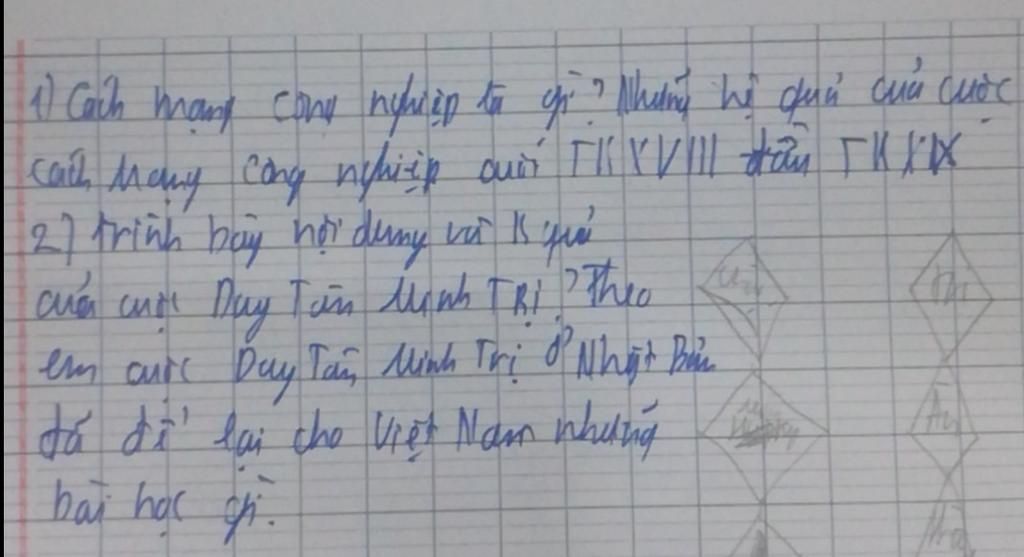 1) Cách mạng công nghiệp là gì? Những hệ quả của cuộc
cách mạng công nghiệp cuối TK XVIII đầu TK XIX
2) trình bày nội dung và K quả
của cuộc Duy Tân Minh TRị? Theo
em cuộc Duy Tân Minh Trị ở Nhật Bản
đã để lại cho Việt Nam những
bài học gì.